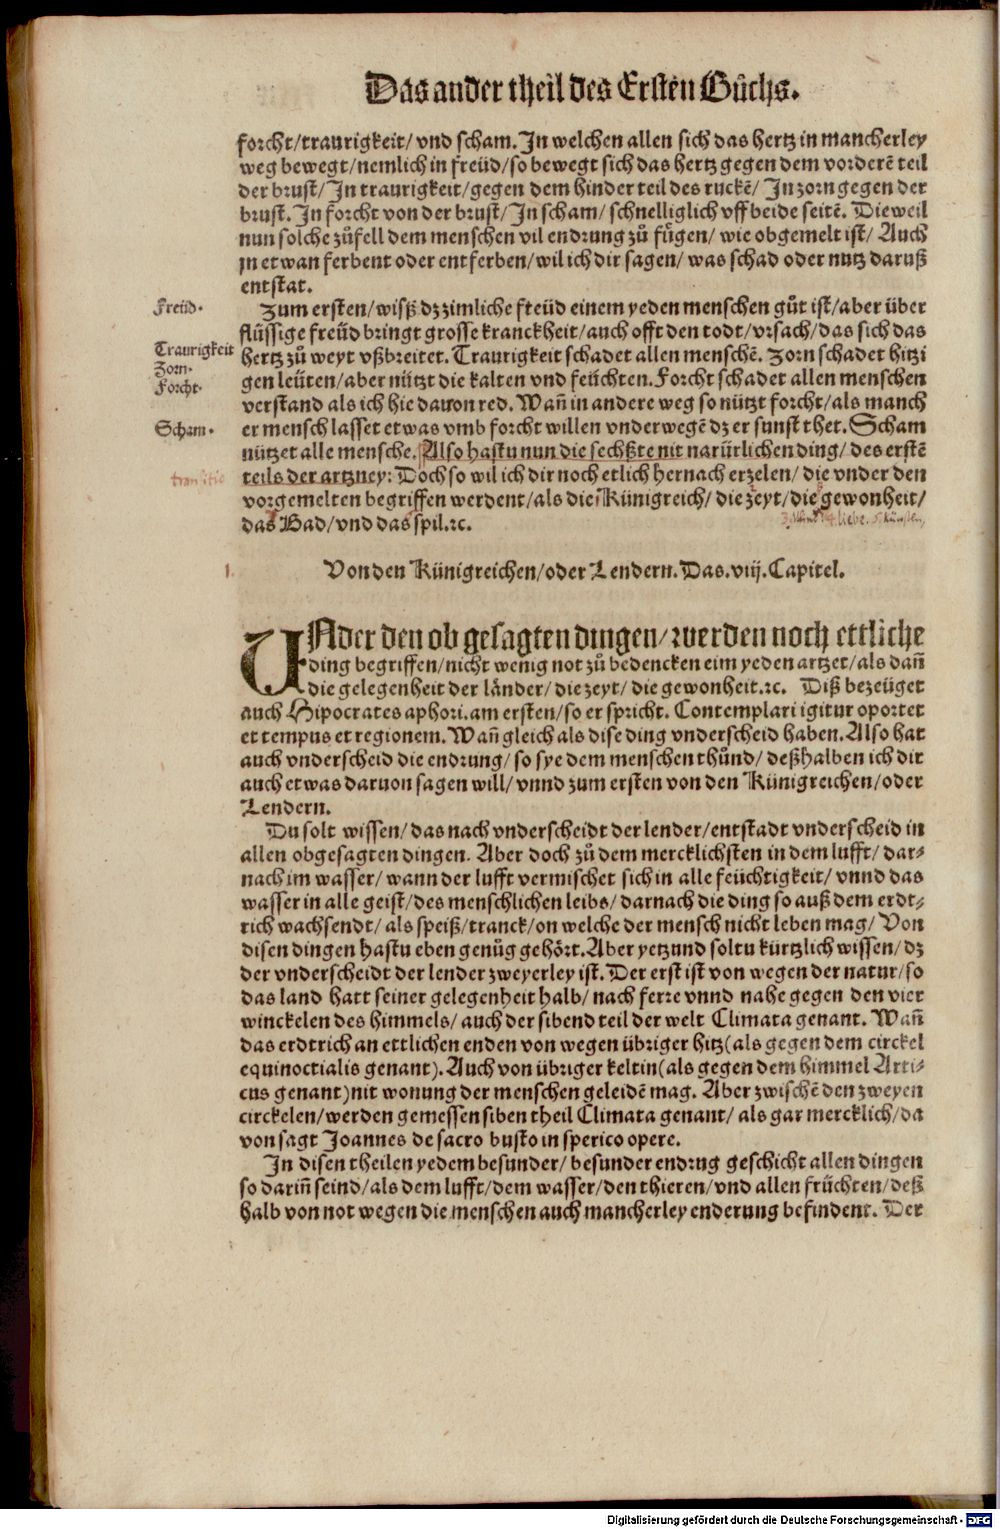 Das ander theil des Ersten Bůchs.
forcht/traurigkeit/ vnd scham. In welchen allen sich das hertz in mancherley
weg bewegt/nemlich in freüd/so bewegt sich das hertz gegen dem vorderē teil
der brust/ In traurigkeit/gegen dem hinder teil des ruckē/ In zorn gegen der
brust. In forcht von der brust/ In scham/ schnelliglich vff beide seitē. Die weil
nun solche zůfell dem menschen vil endrung zů fügen/ wie obgemelt ist/ Auch
jn etwan ferbent oder entferben/wil ich dir sagen/ was schad oder nutz daruß
entstat.
Freüd.
Zum ersten/wisß dz zimliche freüd einem yeden menschen gůt ist/aber über
flüssige freüd bringt grosse kranckheit/auch offt den todt/vrsach/das sich das
Traurigkeit
hertz zů weyt vßbreitet. Traurigkeit schadet allen menschē. Zorn schadet hitzi
Zorn.
gen leüten/aber nützt die kalten vnd feüchten. Forcht schadet allen menschen
Forcht.
verstand als ich hie dauon red. Wañ in andere weg so nützt forcht/als manch
Scham.
er mensch lasset etwas vmb forcht willen vnderwegē dz er sunst thet. Scham
nützet alle mensche. Also hastu nun die sechßte nit natürlichen ding/ des erstē
transitio
teils der artzney: Doch so wil ich dir noch etlich hernach erzelen/ die vnder den
vorgemelten begriffen werdent/als die Künigreich/ die zeyt/die gewonheit/
das Bad/vnd das spil.ꝛc.
liebe. 5. Künsten,
1.
Von den Künigreichen/oder Lendern. Das.viij.Capitel.
VNder den ob gesagten dingen/ werden noch ettliche
ding begriffen/nicht wenig not zů bedencken eim yeden artzet/als dañ
die gelegenheit der länder/ die zeyt/ die gewonheit.ꝛc. Diß bezeüget
auch Hipocrates aphori.am ersten/so er spricht. Contemplari igitur oportet
et tempus et regionem. Wañ gleich als dise ding vnderscheid haben. Also hat
auch vnderscheid die endrung/ so sye dem menschen thůnd/ deßhalben ich dir
auch etwas daruon sagen will/ vnnd zum ersten von den Künigreichen/oder
Lendern.
Du solt wissen/ das nach vnderscheidt der lender/entstadt vnderscheid in
allen obgesagten dingen. Aber doch zů dem mercklichsten in dem lufft/ dar⸗
nach im wasser/ wann der lufft vermischet sich in alle feüchtigkeit/ vnnd das
wasser in alle geist/des menschlichen leibs/ darnach die ding so auß dem erdt⸗
rich wachsendt/ als speiß/tranck/on welche der mensch nicht leben mag/ Von
disen dingen hastu eben genůg gehört. Aber yetzund soltu kürtzlich wissen/ dz
der vnderscheidt der lender zweyerley ist. Der erst ist von wegen der natur/so
das land hatt seiner gelegenheit halb/ nach ferre vnnd nahe gegen den vier
winckelen des himmels/ auch der sibend teil der welt Climata genant. Wañ
das erdtrich an ettlichen enden von wegen übriger hitz(als gegen dem circkel
equinoctialis genant). Auch von übriger keltin(als gegen dem himmel Arti⸗
cus genant)nit wonung der menschen geleidē mag. Aber zwischē den zweyen
circkelen/werden gemessen siben theil Climata genant/ als gar mercklich/da
von sagt Joannes de sacro busto in sperico opere.
In disen theilen yedem besunder/ besunder endrug geschicht allen dingen
so dariñ seind/als dem lufft/dem wasser/den thieren/vnd allen früchten/deß
halb von not wegen die menschen auch mancherley enderung befindent. Der
Digitalisierung gefördert durch die Deutsche Forschungsgemeinschaft - DFG